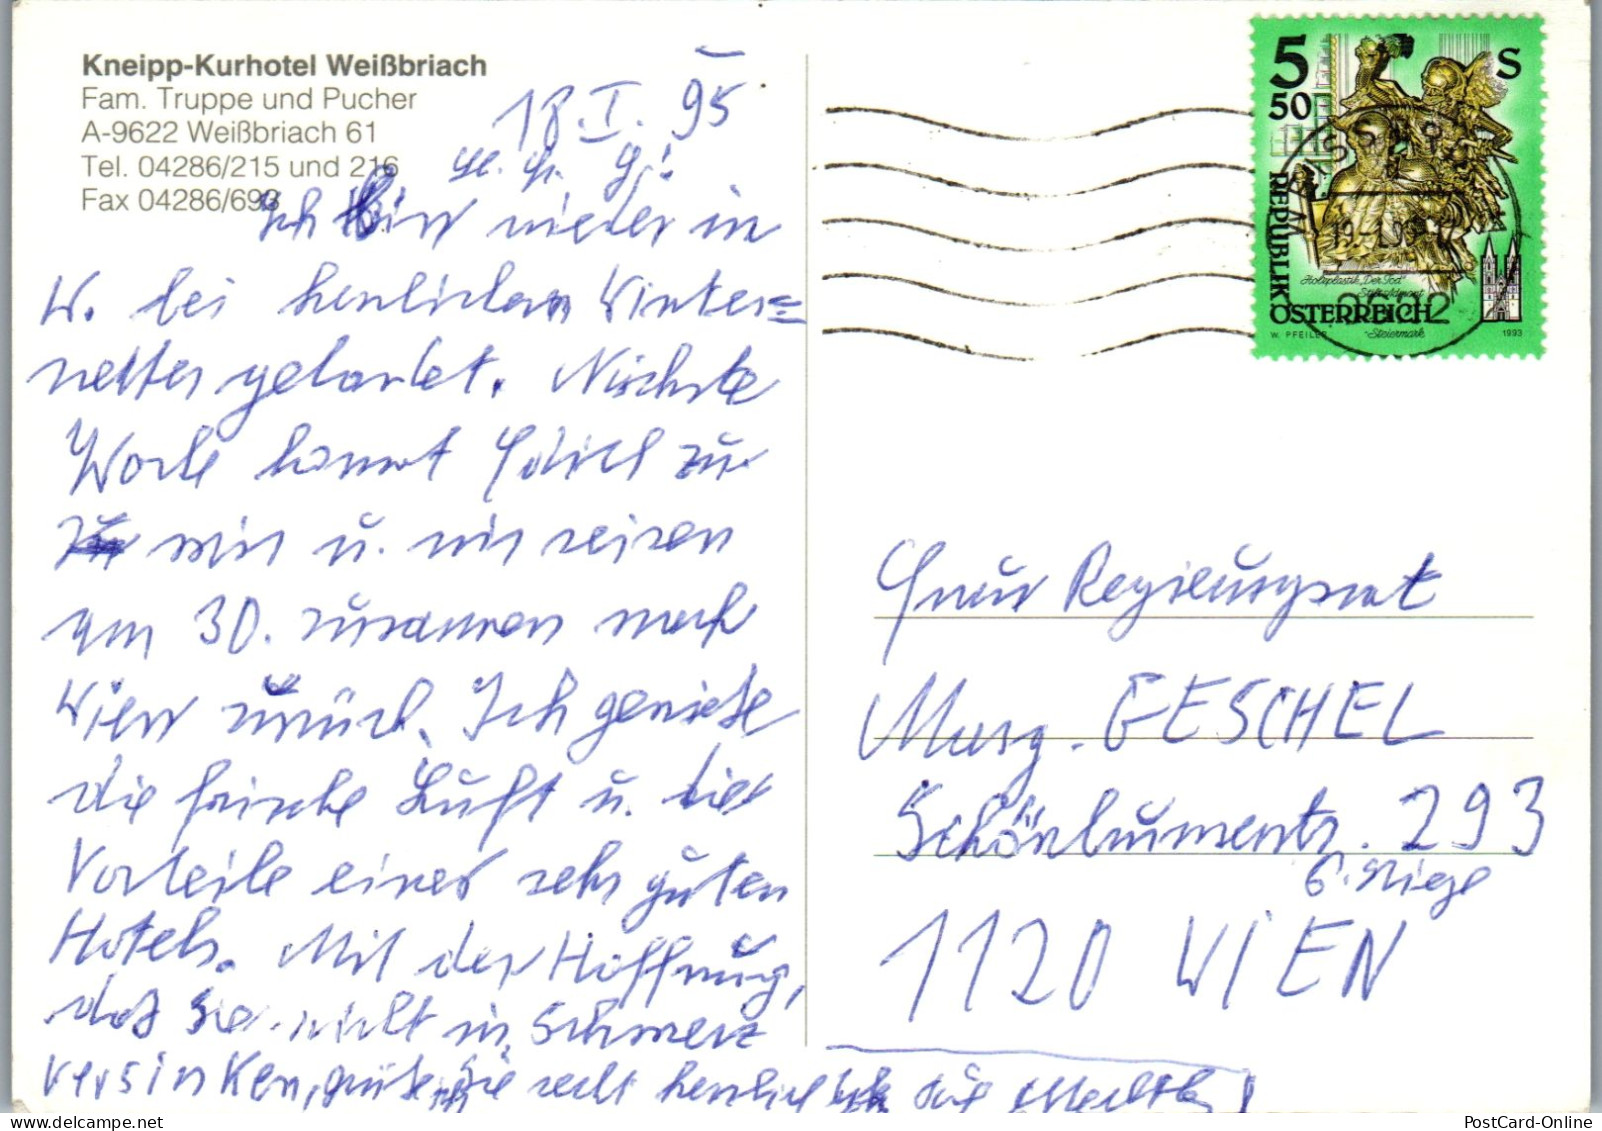 Kneipp-Kurhotel Weißbriach
Fam. Truppe und Pucher
A-9622 Weißbriach 61
Tel. 04286/215 und 216
Fax 04286/693
18. I. 95
Ich bin wieder in
W. bei herrlichem Winter=
wetter gelandet. Nächste
Woche kommt Edith zu
mir u. wir reisen
am 30. zusammen nach
Wien zurück. Ich genieße
die frische Luft u. die
Vorteile eines sehr guten
Hotels. Mit der Hoffnung,
daß Sie nicht in Schmerz
versinken, grüßt Sie recht herzlich
5 50 S
REPUBLIK
ÖSTERREICH
Holzplastik "Der Tod"
Stift Admont
Steiermark
W. PFEILER
1993
Frau Regierungsrat
Marg. GESCHEL
Schönbrunnerstr. 293
6. Stiege
1120 WIEN
PostCard-Online